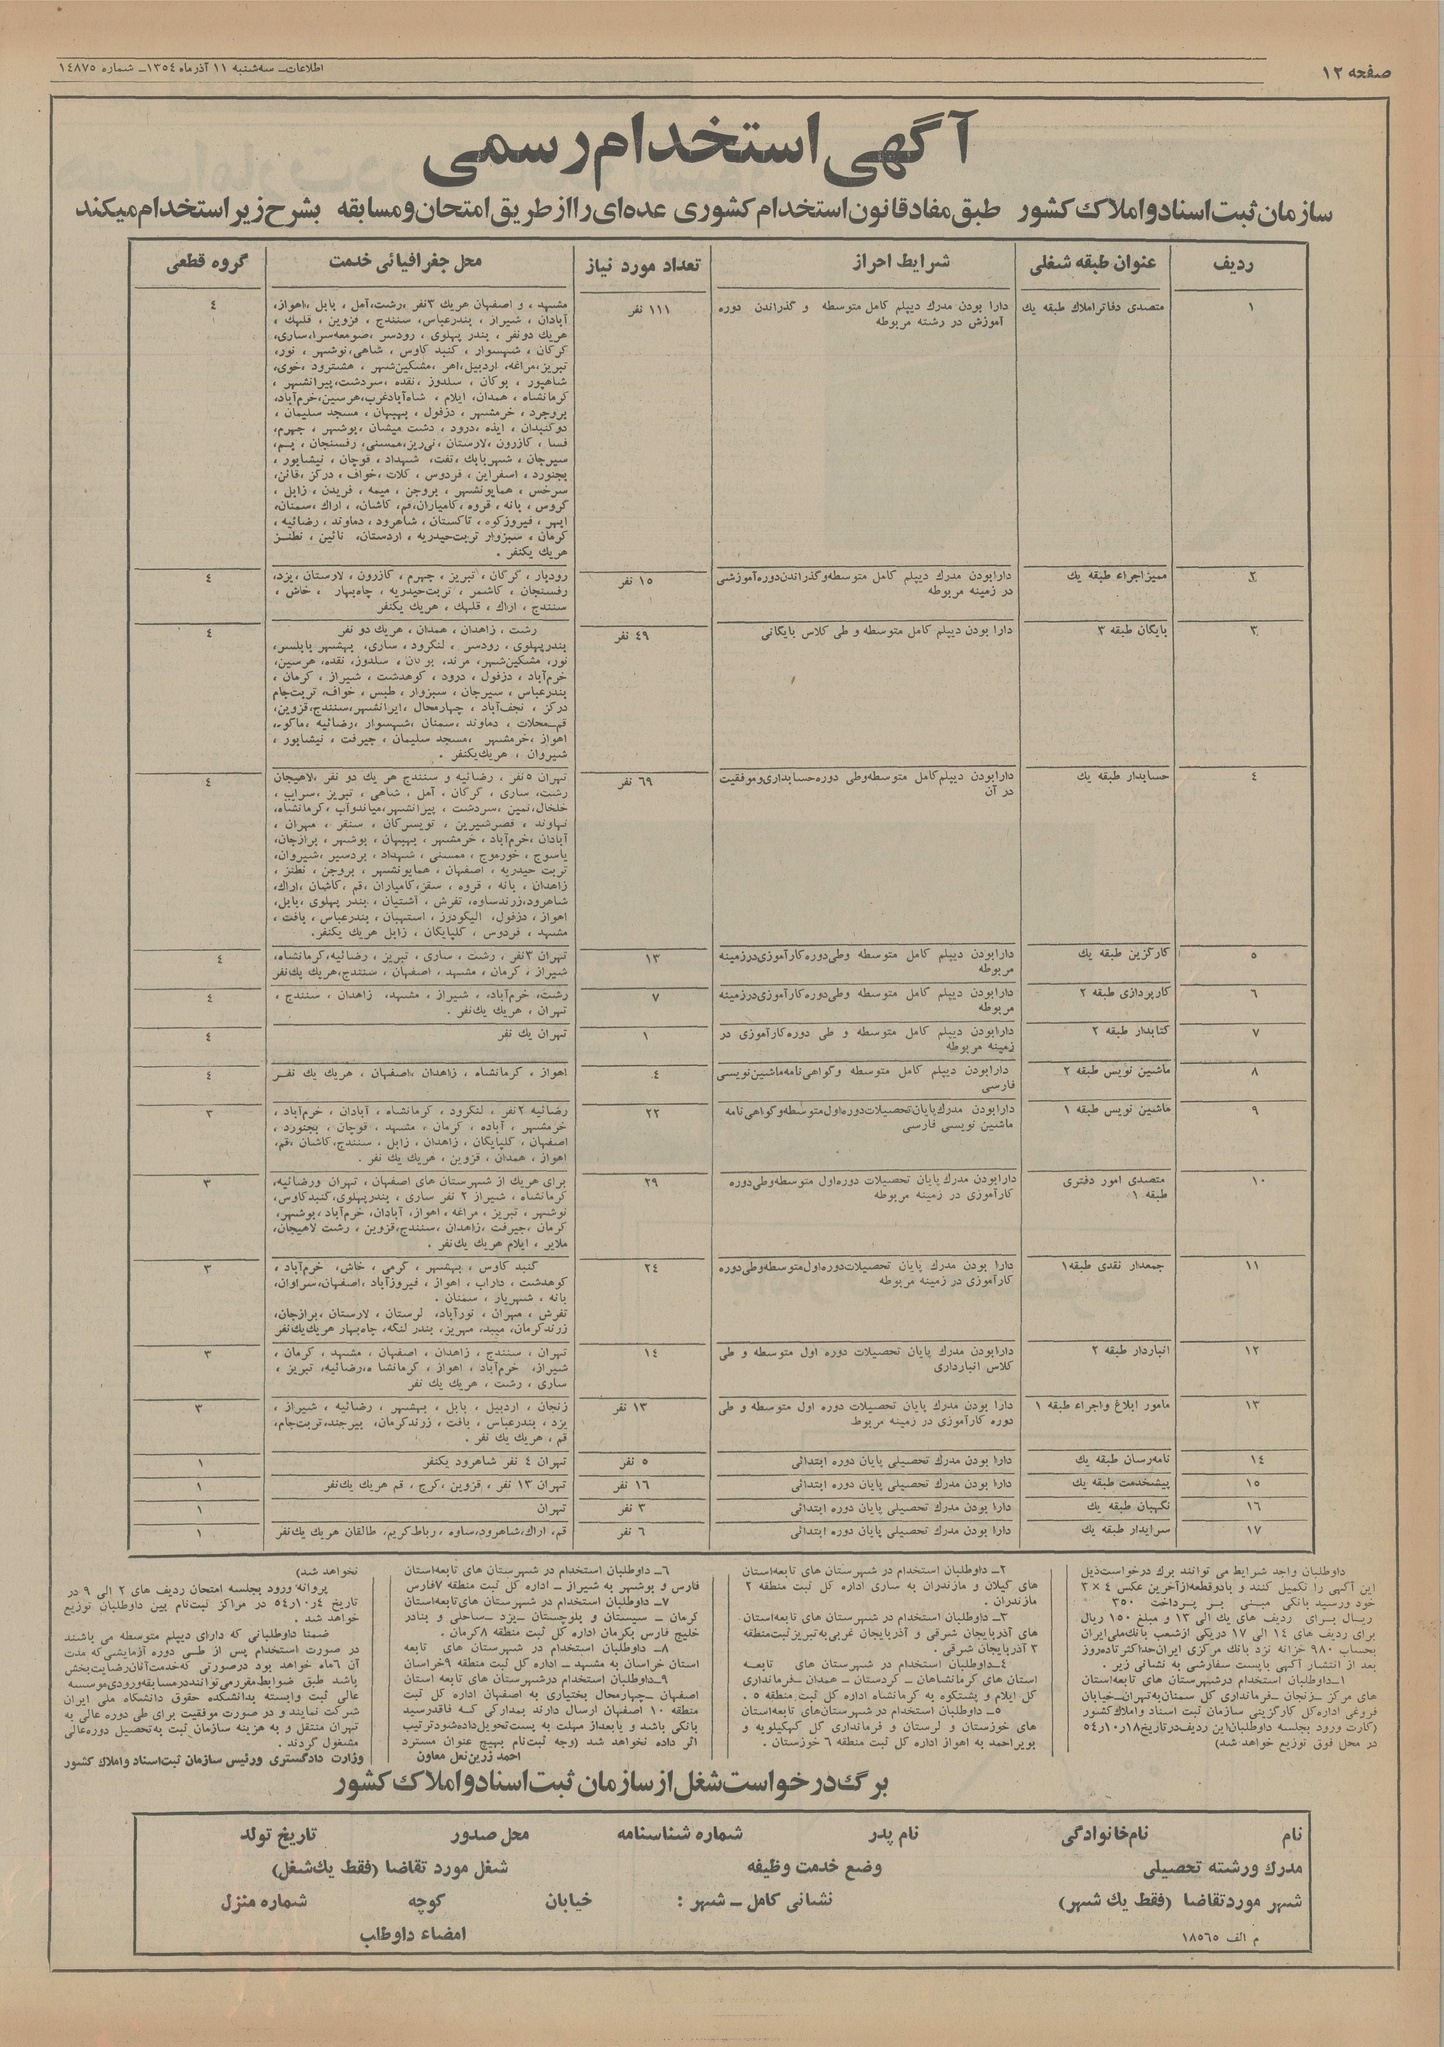 صفحه ۱۲
اطلاعات ـ سه‌شنبه ۱۱ آذر ماه ۱۳۵۴ ـ شماره ۱۴۸۷۵
آگهی استخدام رسمی
سازمان ثبت اسناد و املاک کشور طبق مفاد قانون استخدام کشوری عده‌ای را از طریق امتحان و مسابقه بشرح زیر استخدام میکند
ردیف
عنوان طبقه شغلی
شرایط احراز
تعداد مورد نیاز
محل جغرافیائی خدمت
گروه قطعی
۱
متصدی دفاتر املاک طبقه یك
دارا بودن مدرك دیپلم کامل متوسطه و گذراندن دوره
آموزش در رشته مربوطه
۱۱۱ نفر
مشهد ، و اصفهان هریك ۳ نفر ،رشت،آمل ، بابل ،اهواز،
آبادان ، شیراز ، بندرعباس، سنندج ، قزوین ، قلهك ،
هریك دونفر ، بندر پهلوی ، رودسر ،صومعه‌سرا،ساری،
گرگان ، شهسوار ، گنبد کاوس ، شاهی،نوشهر ، نور،
تبریز،مراغه، اردبیل،اهر ،مشکین‌شهر ، هشترود ،خوی،
شاهپور ، بوکان ، سلدوز ،نقده ،سردشت،پیرانشهر ،
کرمانشاه ، همدان، ایلام ، شاه‌آبادغرب،هرسین،خرم‌آباد،
بروجرد ، خرمشهر ، دزفول ، بهبهان ، مسجد سلیمان ،
دوگنبدان ، ایذه ،درود ، دشت میشان ،بوشهر ، جهرم،
فسا ، کازرون ،لارستان ، نی‌ریز،ممسنی، رفسنجان ، بم،
سیرجان ، شهربابك ، تفت، شهداد ، قوچان ، نیشابور ،
بجنورد ، اسفراین ، فردوس ، کلات ،خواف ، درگز ،قائن،
سرخس ، همایونشهر ، بروجن ، میمه ، فریدن ، زابل ،
گروس ، بانه ، قروه ، کامیاران،قم، کاشان، ، اراك ،سمنان،
ابهر ، فیروزکوه ، تاکستان ، شاهرود ، دماوند ، رضائیه ،
کرمان ، سبزوار تربت‌حیدریه ، اردستان، نائین ، نطنـز
هریك یکنفر .
۴
۲
ممیز اجراء طبقه یك
دارابودن مدرك دیپلم کامل متوسطه و گذراندن دوره آموزشی
در زمینه مربوطه
۱۵ نفر
رودبار ، گرگان ، تبریز ، جهرم ، کازرون ، لارستان ،یزد،
رفسنجان ، کاشمر ، تربت‌حیدریه ، چاه‌بهار ، خاش ،
سنندج ، اراك ، قلهك ، هریك یکنفر
۴
۳
بایگان طبقه ۳
دارا بودن دیپلم کامل متوسطه و طی کلاس بایگانی
۴۹ نفر
رشت ، زاهدان ، همدان ، هریك دو نفر
بندرپهلوی ، رودسر ، لنگرود ، ساری، بهشهر بابلسر،
نور، مشکین‌شهر، مرند، بوکان ، سلدوز، نقده، هرسین،
خرم‌آباد ، دزفول ، درود ، کوهدشت ، شیراز ، کرمان ،
بندرعباس ، سیرجان ، سبزوار ، طبس ، خواف، تربت‌جام
درگز ، نجف‌آباد ، چهارمحال ،ایرانشهر،سنندج،قزوین،
قم ـ محلات ، دماوند ،سمنان ،شهسوار ،رضائیه ،ماکو،
اهواز ،خرمشهر ،مسجد سلیمان ، جیرفت ، نیشابور ،
شیروان ، هریك یکنفر .
۴
۴
حسابدار طبقه یك
دارابودن دیپلم کامل متوسطه وطی دوره حسابداری و موفقیت
در آن
۶۹ نفر
تهران ۵ نفر ، رضائیه و سنندج هر یك دو نفر ،لاهیجان
رشت، ساری ، گرگان ، آمل ، شاهی ، تبریز ، سراب ،
خلخال، نمین ،سردشت ، پیرانشهر،میاندوآب ،کرمانشاه،
نهاوند ، قصرشیرین ، تویسرکان ، سنقر ، مهران ،
آبادان ،خرم‌آباد، خرمشهر ، بهبهان ، بوشهر ، برازجان،
یاسوج ، خورموج ، ممسنی ، شهداد ، بردسیر ،شیروان،
تربت حیدریه ، اصفهان ، همایونشهر ، بروجن ، نطنز ،
زاهدان، بانه ، قروه ، سقز،کامیاران ،قم ، کاشان ،اراك،
شاهرود،زرندساوه، تفرش ، آشتیان ، بندر پهلوی ،بابل،
اهواز ، دزفول، الیگودرز ، استهبان ، بندرعباس ، بافت ،
مشهد ، فردوس ، گلپایگان ، زابل هریك یکنفر.
۴
۵
کارگزین طبقه یك
دارابودن دیپلم کامل متوسطه وطی دوره کارآموزی در زمینه
مربوطه
۱۳
تهران ۳ نفر ، رشت ، ساری ، تبریز ، رضائیه،کرمانشاه،
شیراز ، کرمان ، مشهد ، اصفهان ، سنندج،هریك یك نفر
۴
۶
کارپردازی طبقه ۲
دارابودن دیپلم کامل متوسطه وطی دوره کارآموزی در زمینه
مربوطه
۷
رشت، خرم‌آباد، ، شیراز ، مشهد، زاهدان ، سنندج ،
تهران ، هریك یك نفر .
۴
۷
کتابدار طبقه ۲
دارابودن دیپلم کامل متوسطه و طی دوره کارآموزی در
زمینه مربوطه
۱
تهران یك نفر
۴
۸
ماشین نویس طبقه ۲
دارابودن دیپلم کامل متوسطه وگواهی‌نامه ماشین‌نویسی
فارسی
۴
اهواز ، کرمانشاه ، زاهدان ،اصفهان ، هریك یك نفـر
۴
۹
ماشین نویس طبقه ۱
دارابودن مدرك پایان تحصیلات دوره اول متوسطه و گواهی نامه
ماشین نویسی فارسی
۲۲
رضائیه ۲ نفر ، لنگرود ، کرمانشاه ، آبادان ، خرم‌آباد ،
خرمشهر ، آباده ، کرمان ، مشهد ، قوچان ، بجنورد ،
اصفهان ، گلپایگان ، زاهدان ، زابل ، سنندج، کاشان ،قم،
اهواز ، همدان ، قزوین ، هریك یك نفر .
۳
۱۰
متصدی امور دفتری
طبقه ۱
دارابودن مدرك پایان تحصیلات دوره اول متوسطه وطی دوره
کارآموزی در زمینه مربوطه
۲۹
برای هریك از شهرستان های اصفهان ، تهران ورضائیه،
کرمانشاه ، شیراز ۲ نفر ساری ، بندرپهلوی،گنبدکاوس،
نوشهر ، تبریز ، مراغه ، اهواز، آبادان، خرم‌آباد،بوشهر،
کرمان ،جیرفت ،زاهدان ،سنندج،قزوین ، رشت لاهیجان،
ملایر ، ایلام هریك یك نفر .
۳
۱۱
جمعدار نقدی طبقه ۱
دارا بودن مدرك پایان تحصیلات دوره اول متوسطه وطی دوره
کارآموزی در زمینه مربوطه
۲۴
گنبد کاوس ، بهشهر ، گرمی ، خاش، خرم‌آباد ،
کوهدشت ، داراب ، اهواز ، فیروزآباد، اصفهان،سراوان،
بانه ، شهریار ، سمنان .
تفرش ، مهران ، نورآباد، لرستان ، لارستان ،برازجان،
زرندکرمان، میبد، مهریز، بندر لنگه، چاه‌بهار هریك یك نفر
۳
۱۲
انباردار طبقه ۲
دارابودن مدرك پایان تحصیلات دوره اول متوسطه و طی
کلاس انبارداری
۱۴
تهران ، سنندج ، زاهدان ، اصفهان ، مشهد ، کرمان ،
شیراز، خرم‌آباد ، اهواز ، کرمانشاه ،رضائیه، تبریز ،
ساری ، رشت ، هریك یك نفر
۳
۱۳
مامور ابلاغ واجراء طبقه ۱
دارا بودن مدرك پایان تحصیلات دوره اول متوسطه و طی
دوره کارآموزی در زمینه مربوط
۱۳ نفر
زنجان ، اردبیل ، بابل ، بهشهر ، رضائیه ، شیراز ،
یزد، بندرعباس ، بافت ، زرندکرمان، بیرجند، تربت‌جام،
قم ، هریك یك نفر .
۳
۱۴
نامه‌رسان طبقه یك
دارا بودن مدرك تحصیلی پایان دوره ابتدائی
۵ نفر
تهران ۴ نفر شاهرود یکنفر
۱
۱۵
پیشخدمت طبقه یك
دارا بودن مدرك تحصیلی پایان دوره ابتدائی
۱۶ نفر
تهران ۱۳ نفر ، قزوین ، کرج ، قم هریك یك نفر
۱
۱۶
نگهبان طبقه یك
دارا بودن مدرك تحصیلی پایان دوره ابتدائی
۳ نفر
تهران
۱
۱۷
سرایدار طبقه یك
دارا بودن مدرك تحصیلی پایان دوره ابتدائی
۶ نفر
قم، اراك،شاهرود،ساوه ، رباط‌کریم، طالقان هریك یك نفر
۱
داوطلبان واجد شرایط می توانند برك درخواست ذیل
این آگهی را تکمیل کنند و با دو قطعه از آخرین عکس ۴ × ۳
خود ورسید بانکی مبنـی بـر پـرداخت ۳۵۰
ریـال بـرای ردیف های یك الی ۱۳ و مبلغ ۱۵۰ ریال
برای ردیف های ۱۴ الی ۱۷ در یکی از شعب بانك ملی ایران
بحساب ۹۸۰ خزانه نزد بانك مرکزی ایران حداکثر تا ده روز
بعد از انتشار آگهی بایست سفارشی به نشانی زیر .
۱ـ داوطلبان استخدام در شهرستان های تابعه استان
های مرکز ـ زنجان ـ فرمانداری کل سمنان به تهران ـ خیابان
فروغی اداره کل کارگزینی سازمان ثبت اسناد و املاك کشور
(کارت ورود بجلسه داوطلبان این ردیف در تاریخ ۱۸ر۱۰ر۵۴
در محل فوق توزیع خواهد شد)
۲ـ داوطلبان استخدام در شهرستان های تابعه استان
های گیلان و مازندران به ساری اداره کل ثبت منطقه ۲
مازندران .
۳ـ داوطلبان استخدام در شهرستان های تابعه استان
های آذربایجان شرقی و آذربایجان غربی به تبریز ثبت منطقه
۳ آذربایجان شرقی .
۴ـ داوطلبان استخدام در شهرستان های تابعـه
استان های کرمانشاهان ـ کردستان ـ همدان ـ فرمانداری
کل ایلام و پشتکوه به کرمانشاه اداره کل ثبت منطقه ۵ .
۵ـ داوطلبان استخدام در شهرستان‌های تابعه استان
های خوزستان و لرستان و فرمانداری کل کهکیلویه و
بویراحمد به اهواز اداره کل ثبت منطقه ۶ خوزستان .
۶ـ داوطلبان استخدام در شهرستان های تابعه استان
فارس و بوشهر به شیراز ـ اداره کل ثبت منطقه ۷ فارس
۷ـ داوطلبان استخدام در شهرستان های تابعه استان
کرمان ـ سیستان و بلوچستان ـ یزد ـ ساحلی و بنادر
خلیج فارس بکرمان اداره کل ثبت منطقه ۸ کرمان .
۸ـ داوطلبان استخدام در شهرستان های تابعه
استان خراسان به مشهد ـ اداره کل ثبت منطقه ۹ خراسان
۹ـ داوطلبان استخدام در شهرستان های تابعه استان
اصفهان ـ چهارمحال بختیاری به اصفهان اداره کل ثبت
منطقه ۱۰ اصفهان ارسال دارند بمدارکی کـه فاقد رسید
بانکی باشد و یا بعد از مهلت به پست تحویل داده شود ترتیب
اثر داده نخواهد شد (وجه ثبت‌نام بهیچ عنوان مسترد
نخواهد شد)
پروانه ورود بجلسه امتحان ردیف های ۲ الی ۹ در
تاریخ ۴ر۱۰ر۵۴ در مراکز ثبت‌نام بین داوطلبان توزیع
خواهد شد .
ضمنا داوطلبانی که دارای دیپلم متوسطه می باشند
در صورت استخدام پس از طـی دوره آزمایشی که مدت
آن ۶ ماه خواهد بود در صورتی که خدمت آنان رضایت بخش
باشد طبق ضوابط مقرر می توانند در مسابقه ورودی موسسه
عالی ثبت وابسته بدانشکده حقوق دانشگاه ملی ایران
شرکت نمایند و در صورت موفقیت برای طی دوره عالی به
تهران منتقل و به هزینه سازمان ثبت به تحصیل دوره عالی
مشغول گردند .
احمد زرین‌نعل معاون
وزارت دادگستری و رئیس سازمان ثبت اسناد و املاك کشور
برگ درخواست شغل از سازمان ثبت اسناد و املاک کشور
نام نام خانوادگی نام پدر شماره شناسنامه محل صدور تاریخ تولد
مدرك ورشته تحصیلی وضع خدمت وظیفه شغل مورد تقاضا (فقط یك شغل)
شهر مورد تقاضا (فقط یك شهر) نشانی کامل ـ شهر : خیابان کوچه شماره منزل
امضاء داوطلب
م الف ۱۸۵۶۵